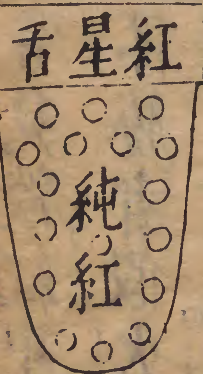 紅星舌
純紅